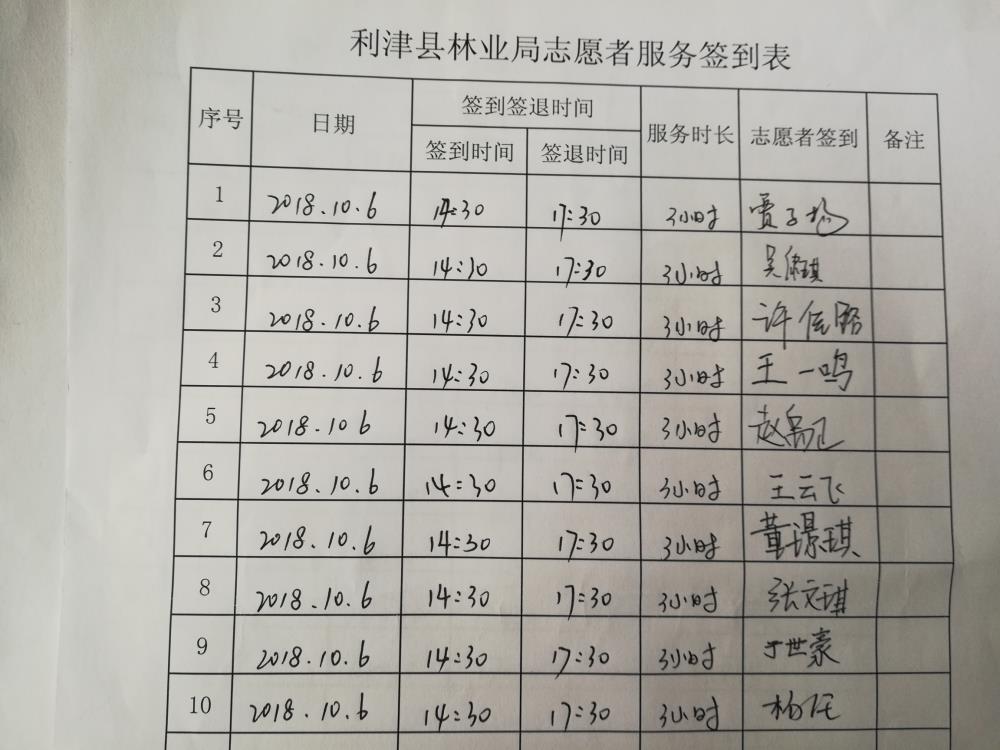 利津县林业局志愿者服务签到表
序号 日期 签到签退时间 服务时长 志愿者签到 备注
签到时间 签退时间
1 2018.10.6 14:30 17:30 3小时 贾子杨
2 2018.10.6 14:30 17:30 3小时 吴
3 2018.10.6 14:30 17:30 3小时 许佳
4 2018.10.6 14:30 17:30 3小时 王一鸣
5 2018.10.6 14:30 17:30 3小时 赵
6 2018.10.6 14:30 17:30 3小时 王云飞
7 2018.10.6 14:30 17:30 3小时 董璟琪
8 2018.10.6 14:30 17:30 3小时 张文琪
9 2018.10.6 14:30 17:30 3小时 于世豪
10 2018.10.6 14:30 17:30 3小时 杨任